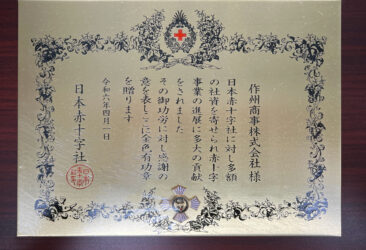 作州商事株式会社 様
日本赤十字社に対し多額
の社資を寄せられ赤十字
事業の進展に多大の貢献
をされました
その御功労に対し感謝の
意を表しここに金色有功章
を贈ります
令和六年四月一日
日本赤十字社